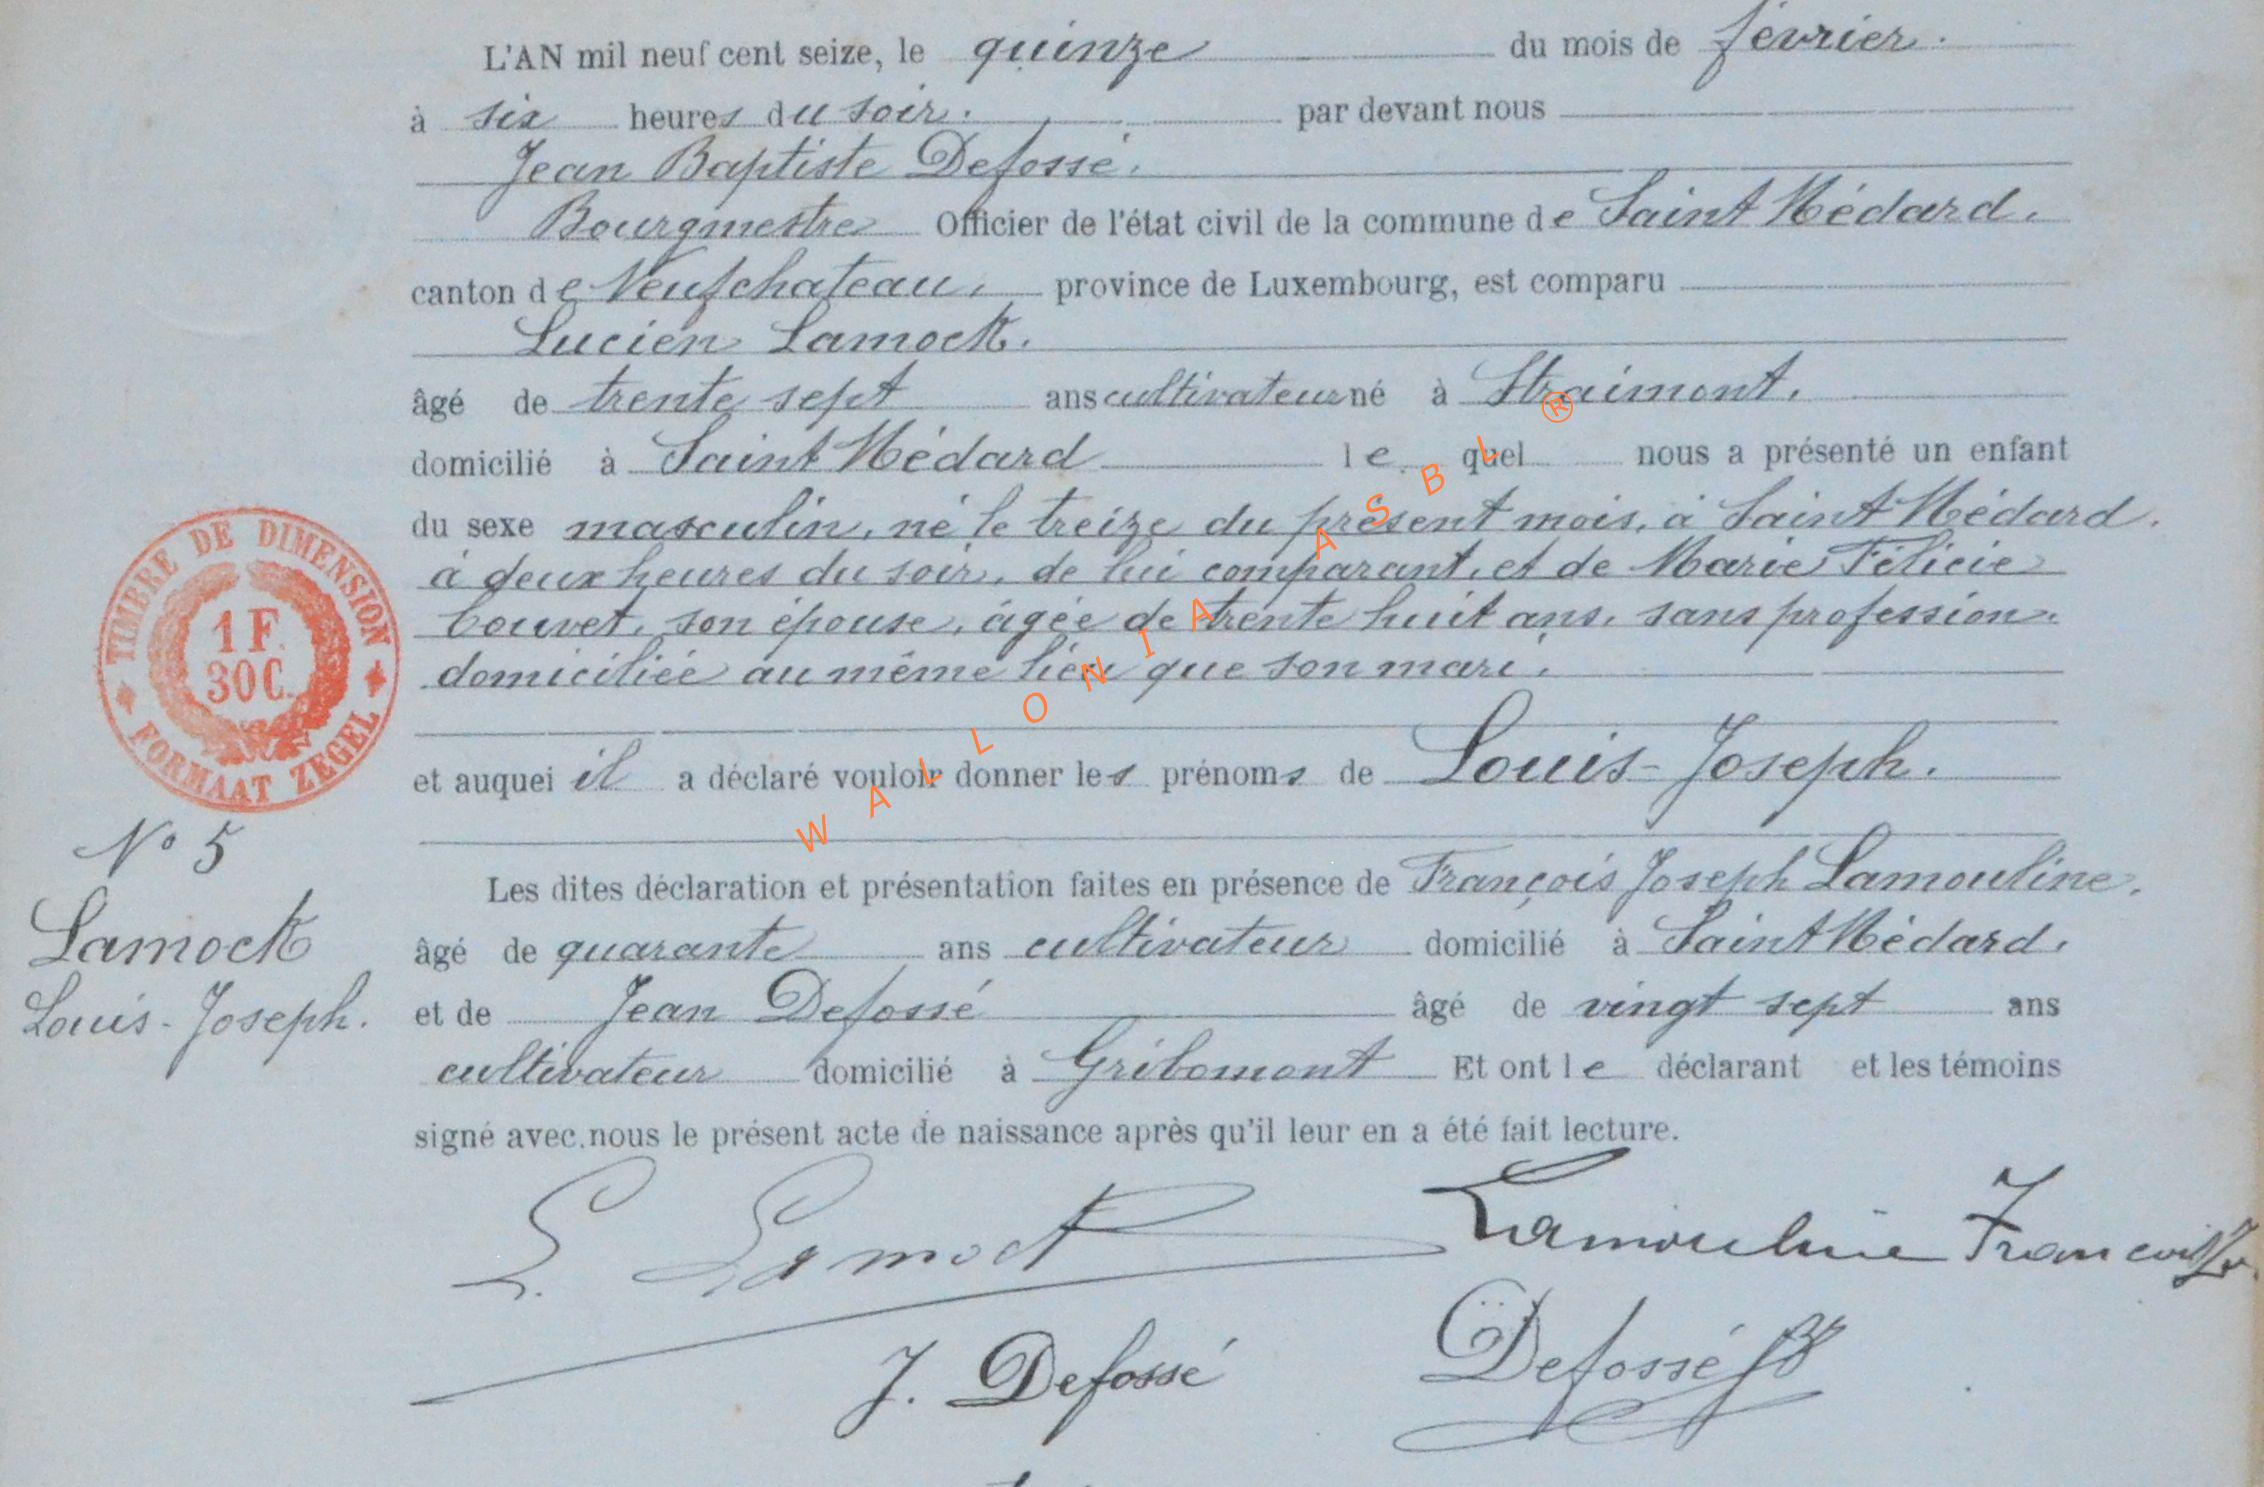 L'AN mil neuf cent seize, le quinze du mois de février.
à six heures du soir. par devant nous
Jean Baptiste Defossé.
Bourgmestre Officier de l'état civil de la commune de Saint Médard.
canton de Neufchateau. province de Luxembourg, est comparu
Lucien Lamock.
âgé de trente sept ans cultivateur né à Straimont.
domicilié à Saint Médard le quel nous a présenté un enfant
du sexe masculin, né le treize du présent mois, à Saint Médard.
à deux heures du soir, de lui comparant, et de Marie Félicie
Couvet, son épouse, âgée de trente huit ans, sans profession.
domiciliée au même lieu que son mari.
et auquei il a déclaré vouloir donner les prénoms de Louis-Joseph.
Les dites déclaration et présentation faites en présence de François Joseph Lamouline.
âgé de quarante ans cultivateur domicilié à Saint Médard.
et de Jean Defossé âgé de vingt sept ans
cultivateur domicilié à Gribomont Et ont le déclarant et les témoins
signé avec nous le présent acte de naissance après qu'il leur en a été fait lecture.
L. Lamock
Lamouline François
J. Defossé
Defossé JB
TIMBRE DE DIMENSION
1 F.
30 C.
FORMAAT ZEGEL
N° 5
Lamock
Louis-Joseph.
WALLONIA ASBL ®